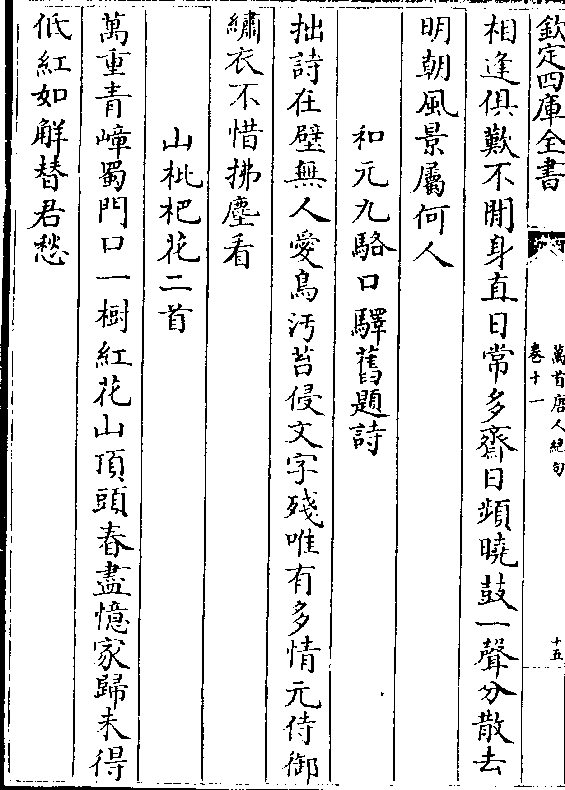 欽定四庫全書
萬首唐人絕句
卷十一
十五
相逢俱歎不閒身直日常多齋日頻曉鼓一聲分散去
明朝風景屬何人
和元九駱口驛舊題詩
拙詩在壁無人愛鳥汚苔侵文字殘唯有多情元侍御
繡衣不惜拂塵看
山枇杷花二首
萬重青嶂蜀門口一樹紅花山頂頭春盡憶家歸未得
低紅如解替君愁